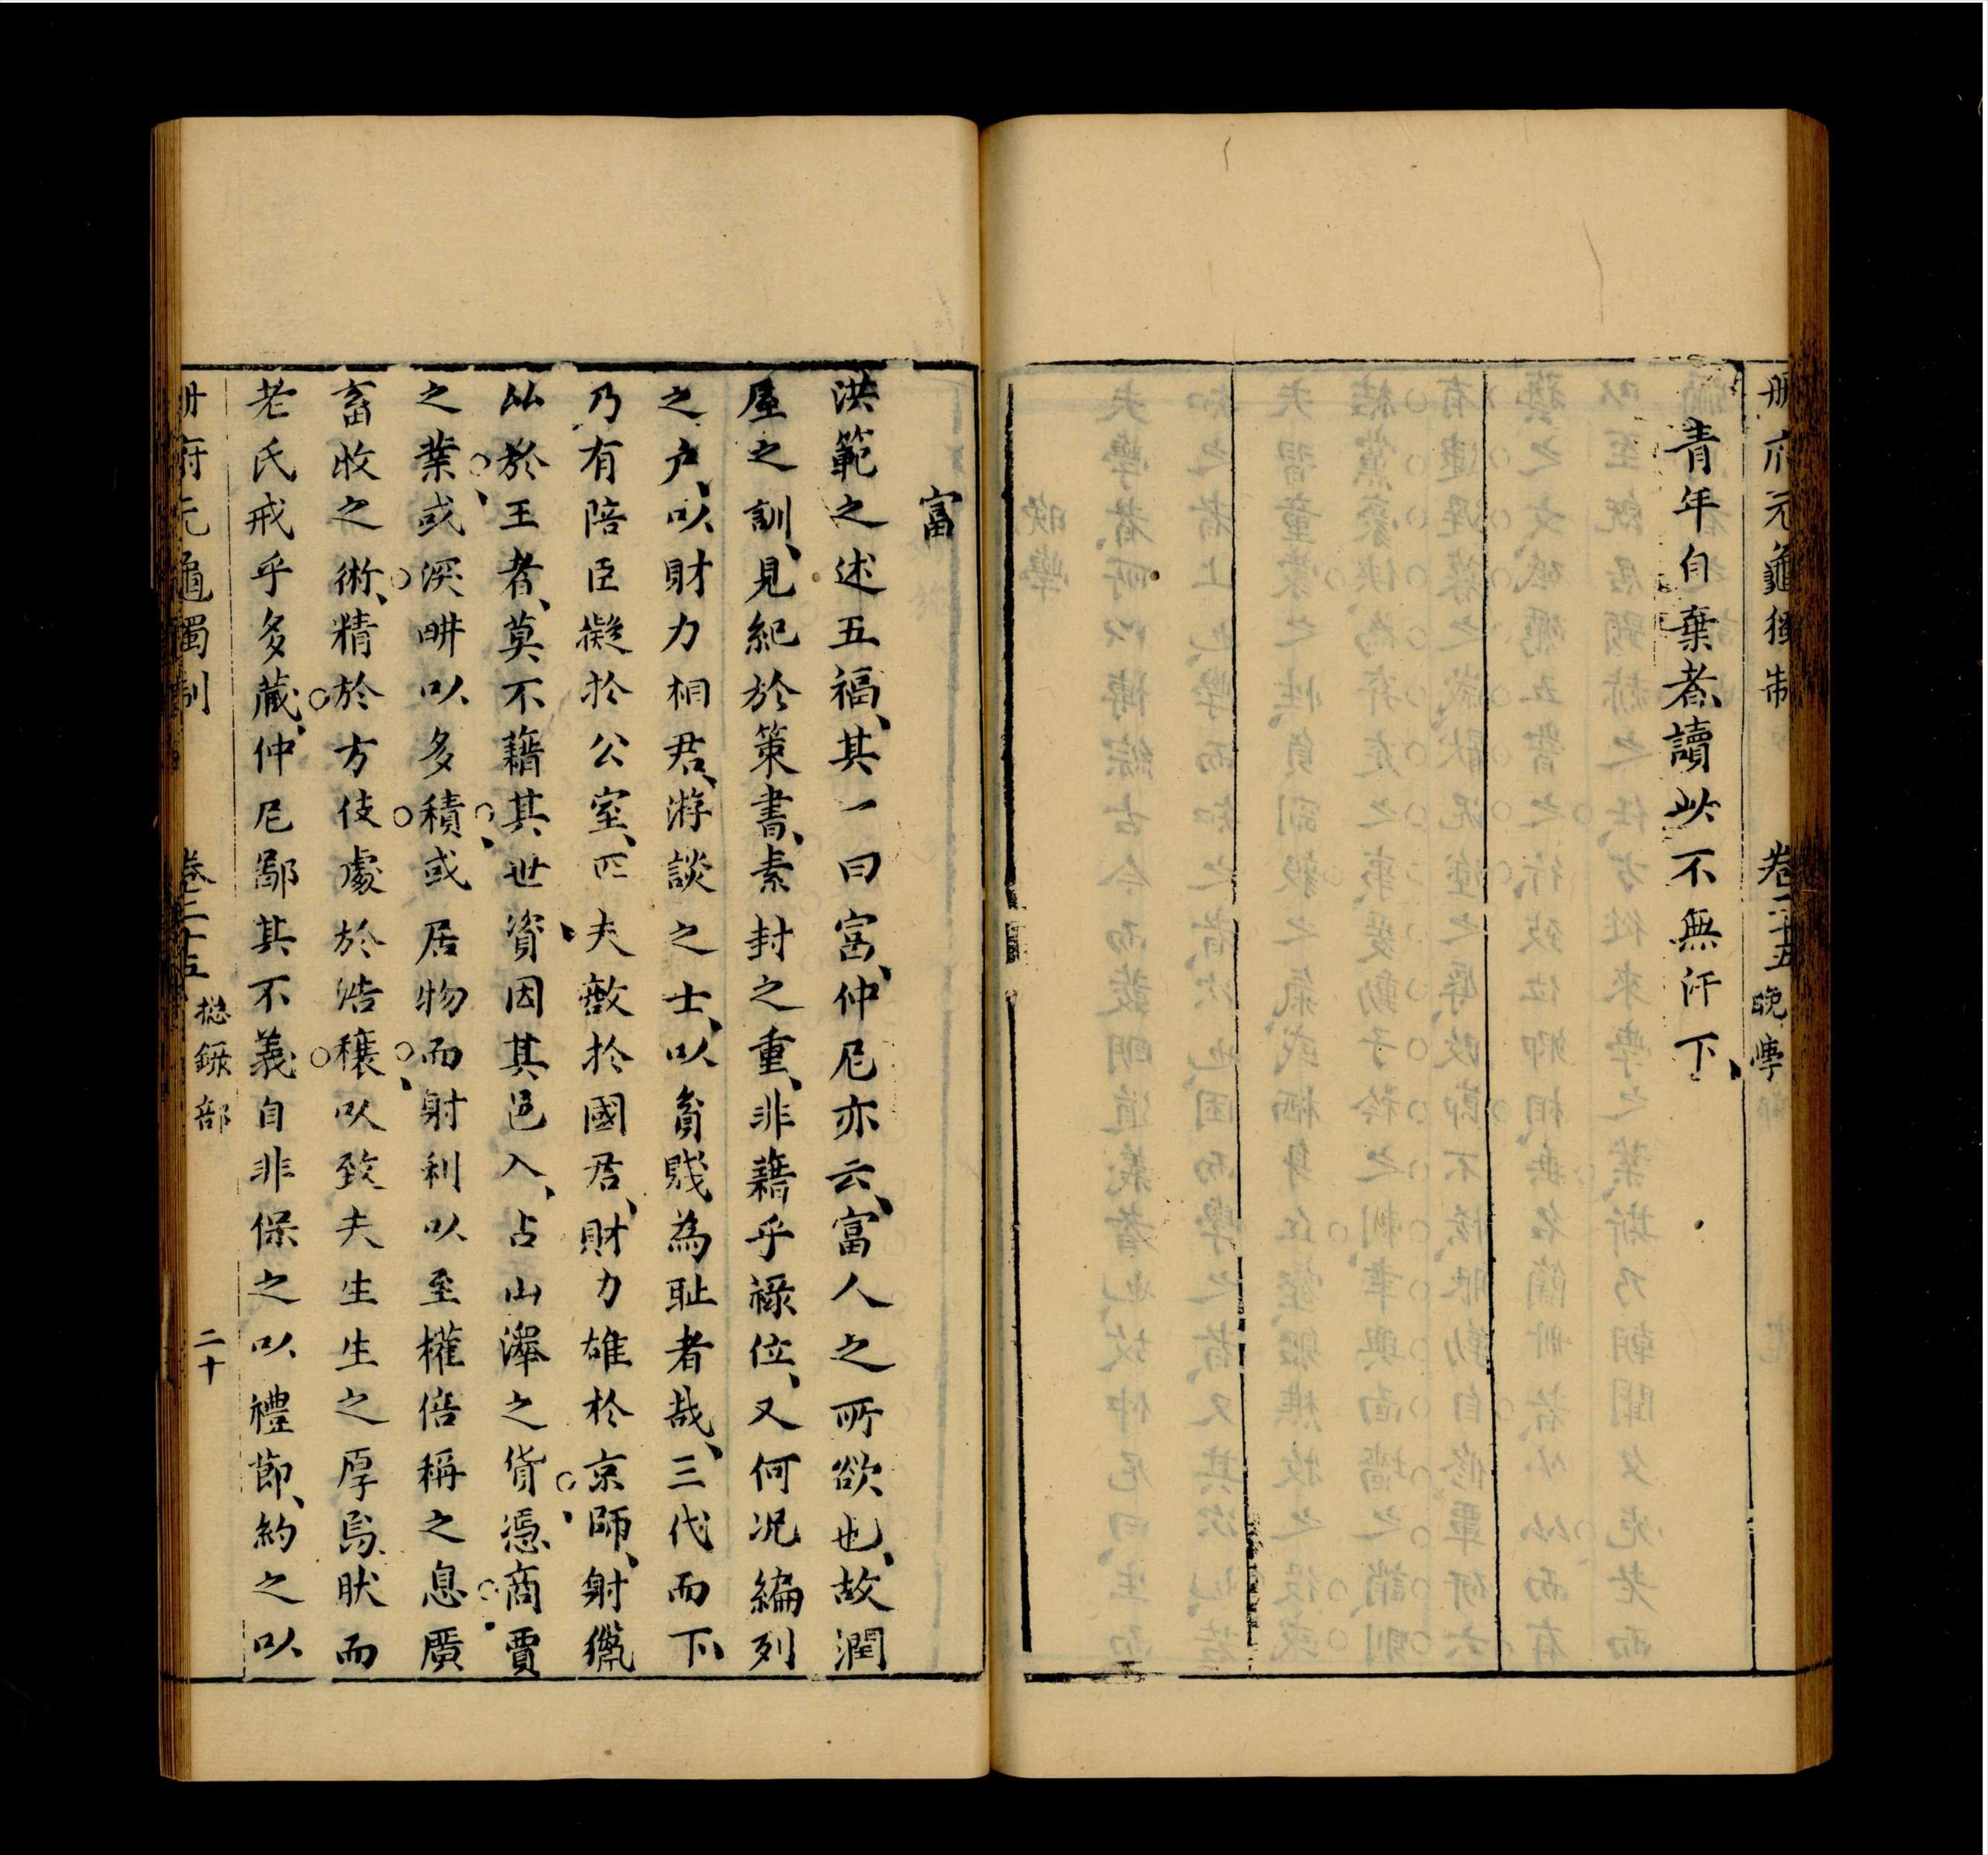 冊府元龜獨制 卷三十五 晚學
青年自棄者讀此不無汗下
富
洪範之述五福其一曰富仲尼亦云富人之所欲也故潤
屋之訓見紀於策書素封之重非藉乎祿位又何况編列
之户以財力相君游談之士以貧賤為耻者哉三代而下
乃有陪臣擬於公室匹夫敵於國君財力雄於京師射獵
此於王者莫不藉其世資因其邑入占山澤之貨憑商賈
之業或深畊以多積或居物而射利以至權倍稱之息廣
畜收之術精於方伎處於浩穰以致夫生生之厚焉肰而
老氏戒乎多藏仲尼鄙其不義自非保之以禮節約之以
冊府元龜獨制 卷三十五 總錄部 二十